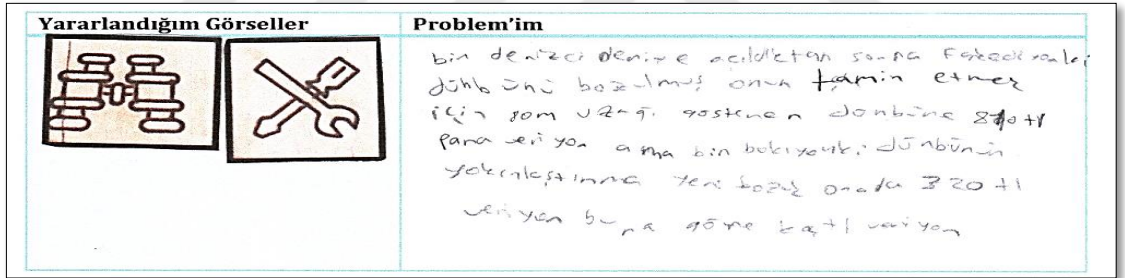 Yararlandığım Görseller
Problem'im
bir denizci denize açıldıktan sonra farkediyorki
dühbünü bozulmuş onun tamir etmek
için 50m uzağı gösteren dürbüne 870 tl
para veriyor ama bir bakıyorki dürbünün
yakınlaştırma yeri bozuk onada 320 tl
veriyor buna göre kaç tl veriyor